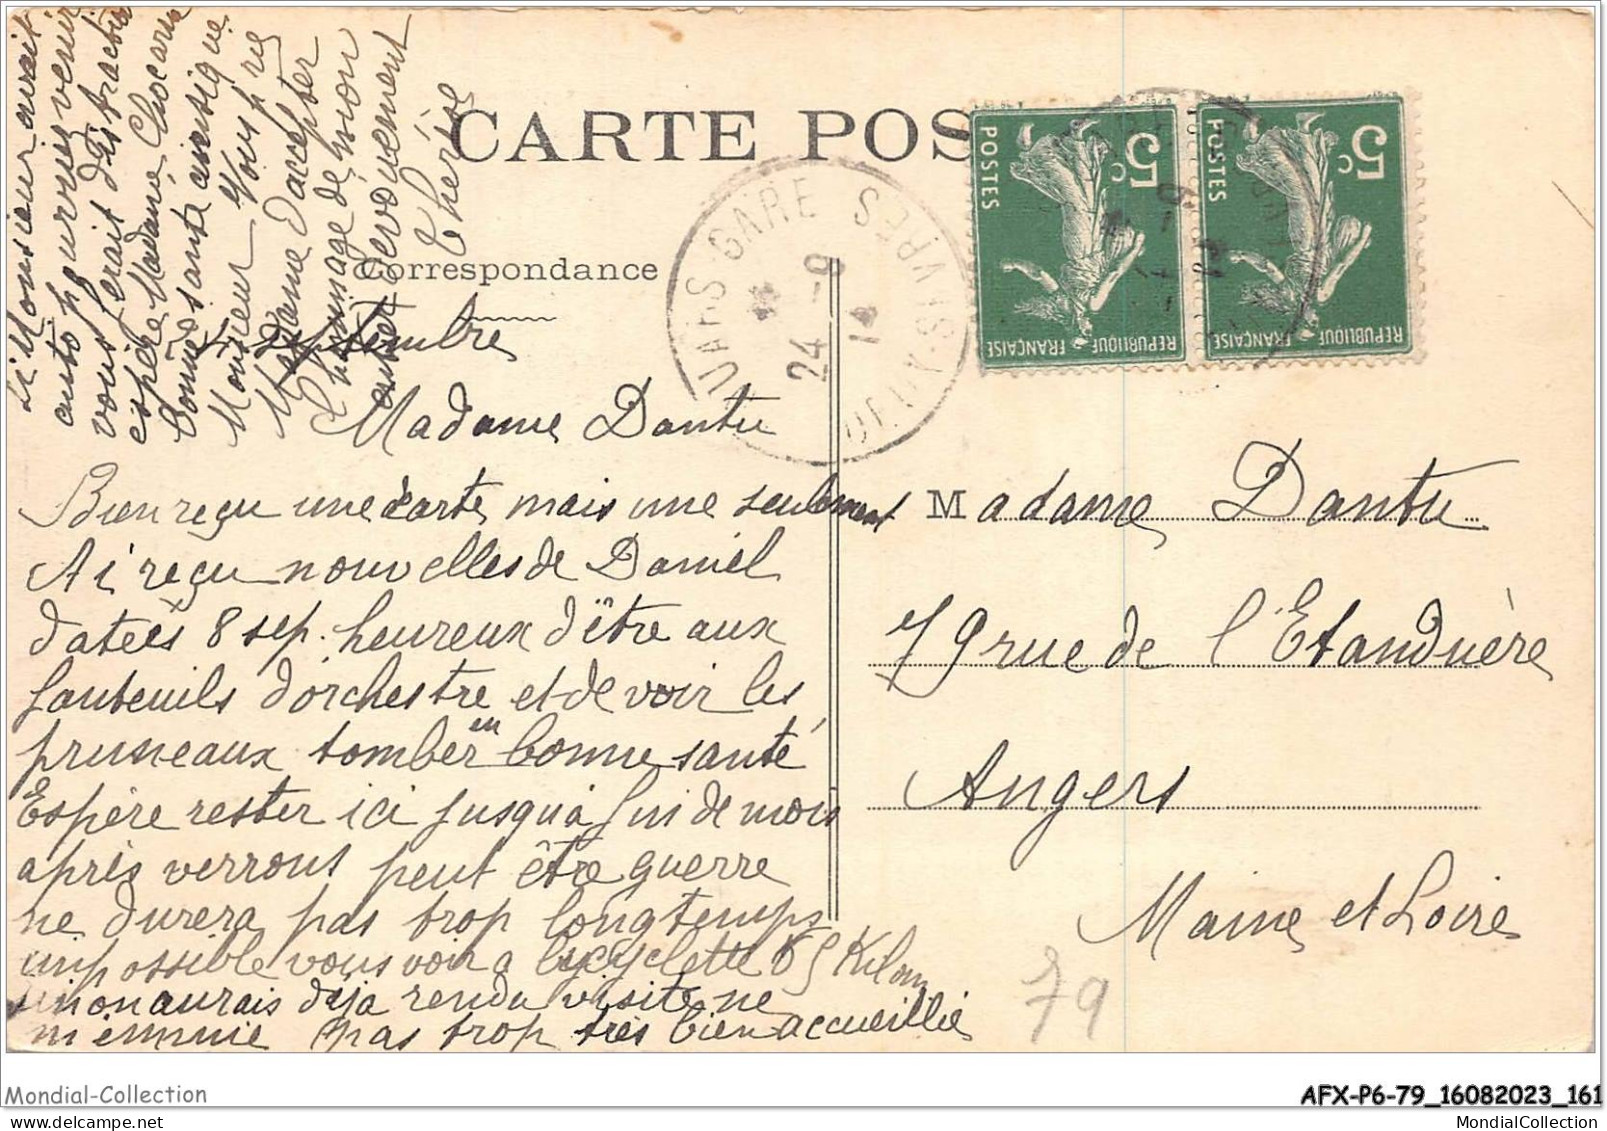 CARTE POS
Correspondance
24 septembre
Madame Dantu
Bien reçu une carte mais une seulement
Ai reçu nouvelles de Daniel
datées 8 sep. heureux d'être aux
fauteuils d'orchestre et de voir les
pruneaux tomber en bonne santé
Espère rester ici jusqu'à fin de mois
après verrons peut être guerre
ne durera pas trop longtemps
impossible vous voir à bicyclette 65 Kilom
sinon aurais déjà rendu visite ne
m'ennuie pas trop très bien accueillie
Si Monsieur avait
auto pourriez venir
vous ferait distraction
espère Madame
bonne santé ainsi que
Monsieur Vous prie
Madame d'accepter
l'hommage de mon
entier dévouement
Thérèse
THOUARS-GARE
DEUX-SÈVRES
24 -9
14
5c
POSTES
REPUBLIQUE FRANÇAISE
5c
POSTES
REPUBLIQUE FRANÇAISE
Madame Dantu
79 rue de l'Etanduère
Angers
Maine et Loire
79
Mondial-Collection
AFX-P6-79_16082023_161
MondialCollection.com